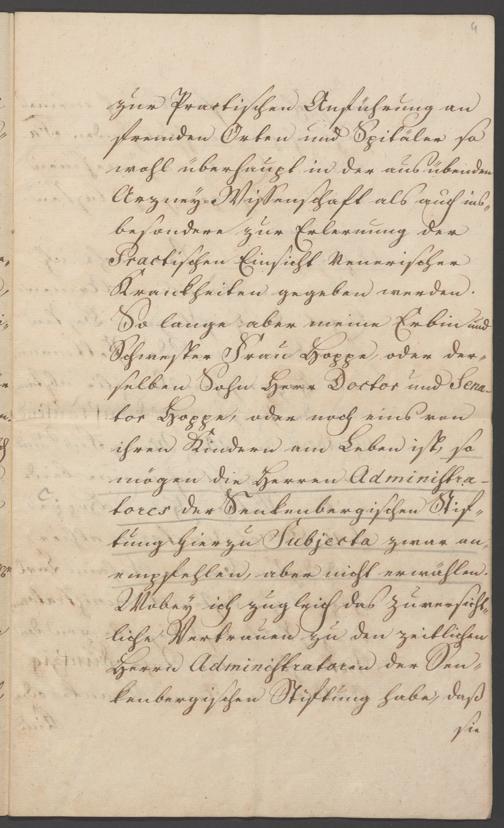 4
zur Practischen Anführung an
fremden Orten und Spitäler so
wohl überhaupt in der ausübenden
Arzney-Wissenschaft als auch ins-
besondere zur Erlernung der
Practischen Einsicht Venerischer
Krankheiten gegeben werden.
So lange aber meine Erbin und
Schwester Frau Hoppe, oder der-
selben Sohn Herr Doctor und Sena-
tor Hoppe, oder noch eins von
ihren Kindern am Leben ist, so
mögen die Herren Administra-
tores der Senkenbergischen Stif-
tung hierzu Subjecta zwar an-
empfehlen, aber nicht erwählen.
Wobey ich zugleich das zuversicht-
liche Vertrauen zu den zeitlichen
Herrn Administratoren der Sen-
kenbergischen Stiftung habe, daß
sie